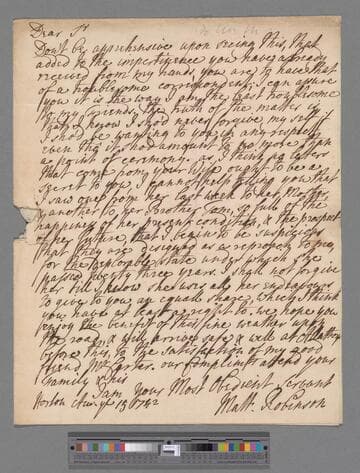 Dear Sr
Don't be apprehensive upon seeing this, that
added to the impertinence you have already
received from my hands, you are to have that
of a troublesome correspondent, I can assure
you it is the way I am the least
to my friends. The truth of the matter is
I should never forgive my self if
I shou'd be wanting to you in any respect
even tho' it shou'd amount to no more than
a point of ceremony. as I think no letter
that comes from your Wife ought to be a
secret to you I cannot help telling you that
I saw one from her last week to her Mother,
& another to her Brother Tom, so full of the
happiness of her present condition, & the prospect
of her future, that I begin to be suspicious
that they are designed as a reproach to me,
for the state under which she
passed twenty three years. I shall not forgive
her till I know she uses all her endeavours
to give to you an equal share, which I think
you have at least a right to. we hope you
enjoy the benefit of this fine weather upon
the road & will arrive safe & well at
before this, to the satisfaction of my good
friend Mr Carter. our compliments attend your
Family & his
I am Your Most Obedient Servant
Horton Augt ye 13 1742 Matt. Robinson